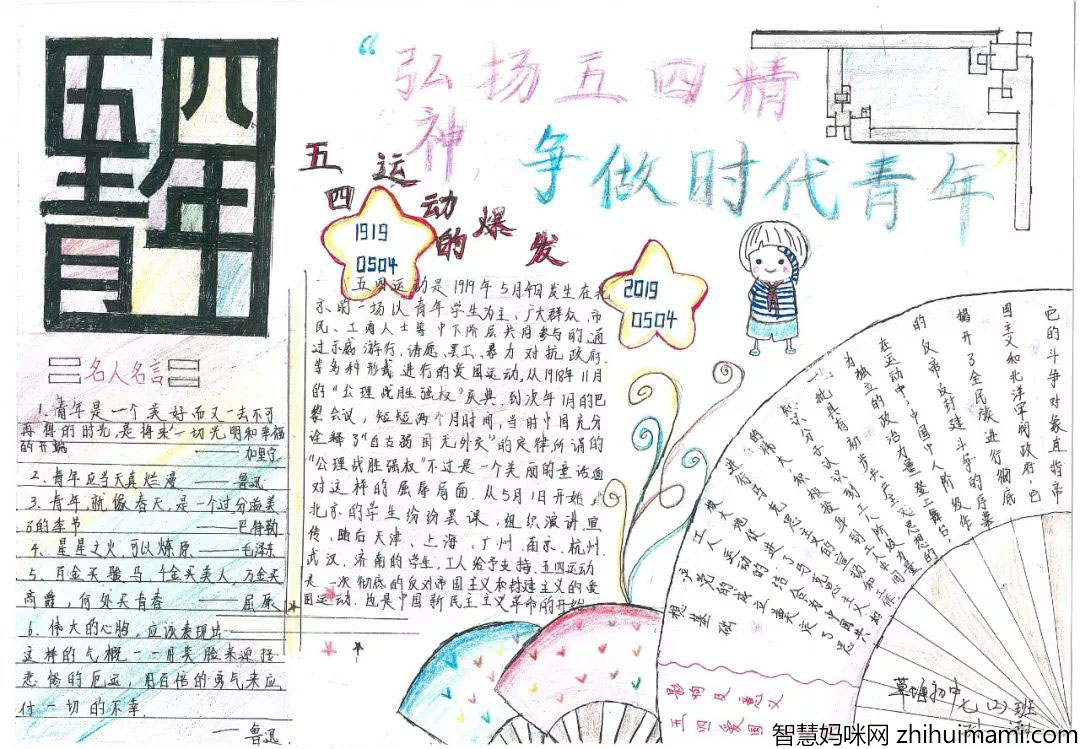 五四
青年
“弘扬五四精
神，争做时代青年”
五四运动的爆发
1919
0504
2019
0504
名人名言
1、青年是一个美好而又一去不可
再得的时光，是将来一切光明和幸福
的开端 ——加里宁
2、青年应当天真烂漫 ——鲁迅
3、青年，就像春天，是一个过分溢美
了的季节 ——巴特勒
4、星星之火，可以燎原 ——毛泽东
5、百金买骏马，千金买美人，万金买
高爵，何处买青春 ——屈原
6、伟大的心胸，应该表现出
这样的气概——用笑脸来迎接
悲惨的厄运，用百倍的勇气来应
付一切的不幸。
——鲁迅
五四运动是1919年5月4日发生在北
京的一场以青年学生为主，广大群众、市
民、工商人士等中下阶层共同参与的，通
过示威游行、请愿、罢工、暴力对抗政府
等多种形式进行的爱国运动，从1918年11月
的“公理战胜强权”庆典，到次年1月的巴
黎会议，短短两个月时间，当时中国充分
诠释了“自古弱国无外交”的定律所谓的
“公理战胜强权”不过是一个美丽的童话面
对这样的屈辱局面，从5月1日开始，
北京的学生纷纷罢课，组织演讲宣
传，随后天津、上海、广州、南京、杭州、
武汉、济南的学生，工人给予支持。五四运动
是一次彻底的反对帝国主义和封建主义的爱
国运动，也是中国新民主主义革命的开始
它的斗争对象直指帝
国主义和北洋军阀政府，它
揭开了全民族进行彻底
的反帝反封建斗争的序幕
在运动中，中国工人阶级作
为独立的政治力量登上舞台，
一批具有初步共产主义思想的
知识分子认识到工人阶级力量
的伟大，积极投身到工人中间
进行马克思主义的宣传和工作，
极大地促进了马克思主义和
工人运动的结合，为中国共
产党的成立奠定了思
想基础
影响及意义
五四爱国
草塘初中
七（2）班
智慧妈咪网 zhihuimami.com